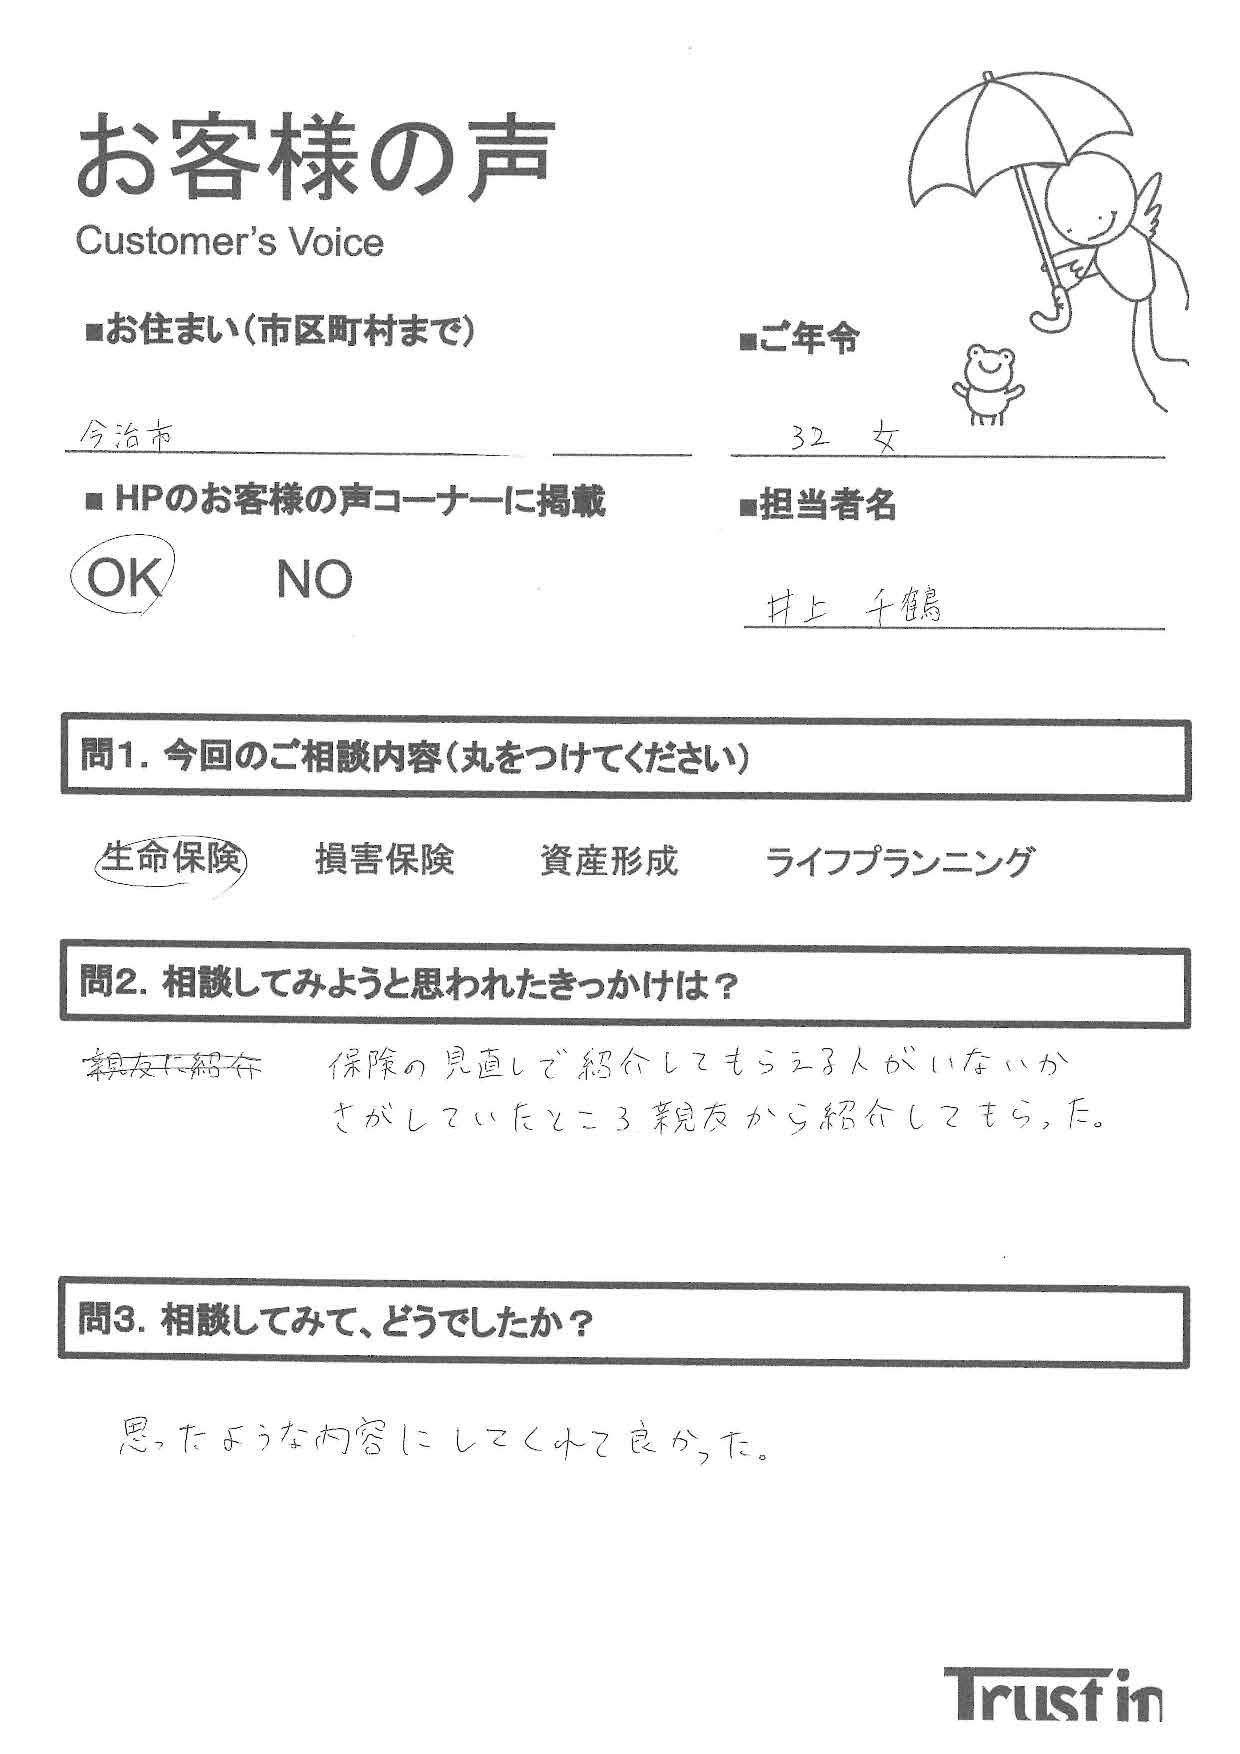 お客様の声
Customer's Voice
■お住まい(市区町村まで)
■ご年令
今治市
32 女
■ HPのお客様の声コーナーに掲載
■担当者名
OK NO
井上 千鶴
問1. 今回のご相談内容(丸をつけてください)
生命保険 損害保険 資産形成 ライフプランニング
問2. 相談してみようと思われたきっかけは?
親友に紹介 保険の見直しで紹介してもらえる人がいないか
さがしていたところ親友から紹介してもらった。
問3. 相談してみて、どうでしたか?
思ったような内容にしてくれて良かった。
Trust in